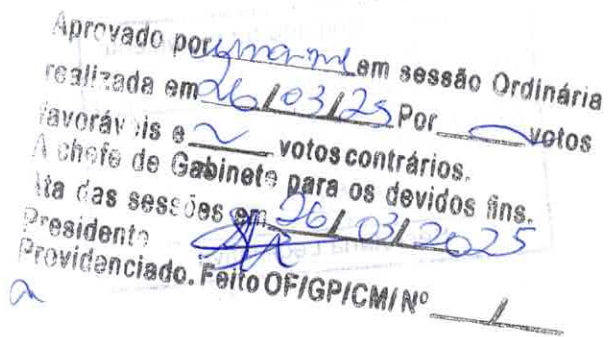 Aprovado por unanime em sessão Ordinária
realizada em 26/03/25 Por votos
favoráveis e votos contrários.
A chefe de Gabinete para os devidos fins.
ata das sessões em 26/03/2025
Presidente
Providenciado. Feito OF/GP/CMI Nº /